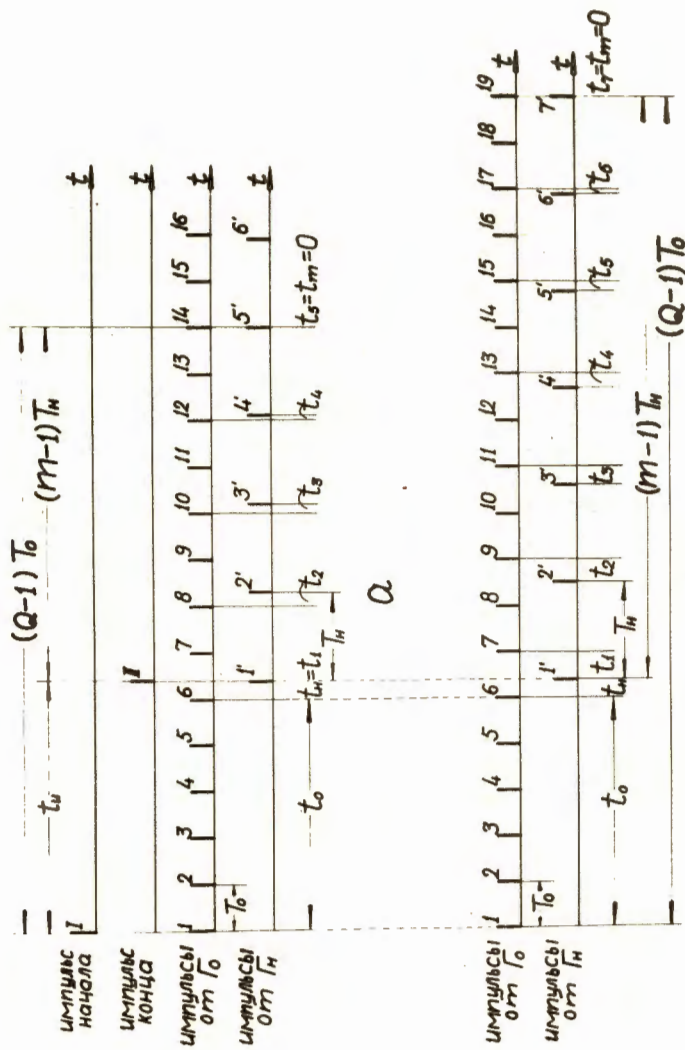 (Q-1)T₀
tᵤ
(m-1)Tн
импульс начала
I
t
импульс конца
II
t
импульсы от Г₀
1 2 3 4 5 6 7 8 9 10 11 12 13 14 15 16
t
T₀
импульсы от Гн
1' 2' 3' 4' 5' 6'
t
t₀
tн=t₁
t₂
t₃
t₄
t₅=tm=0
Tн
а
импульсы от Г₀
1 2 3 4 5 6 7 8 9 10 11 12 13 14 15 16 17 18 19
t
T₀
импульсы от Гн
1' 2' 3' 4' 5' 6' 7'
t
t₀
tн
t₁
t₂
t₃
t₄
t₅
t₆
t₇=tm=0
Tн
(m-1)Tн
(Q-1)T₀